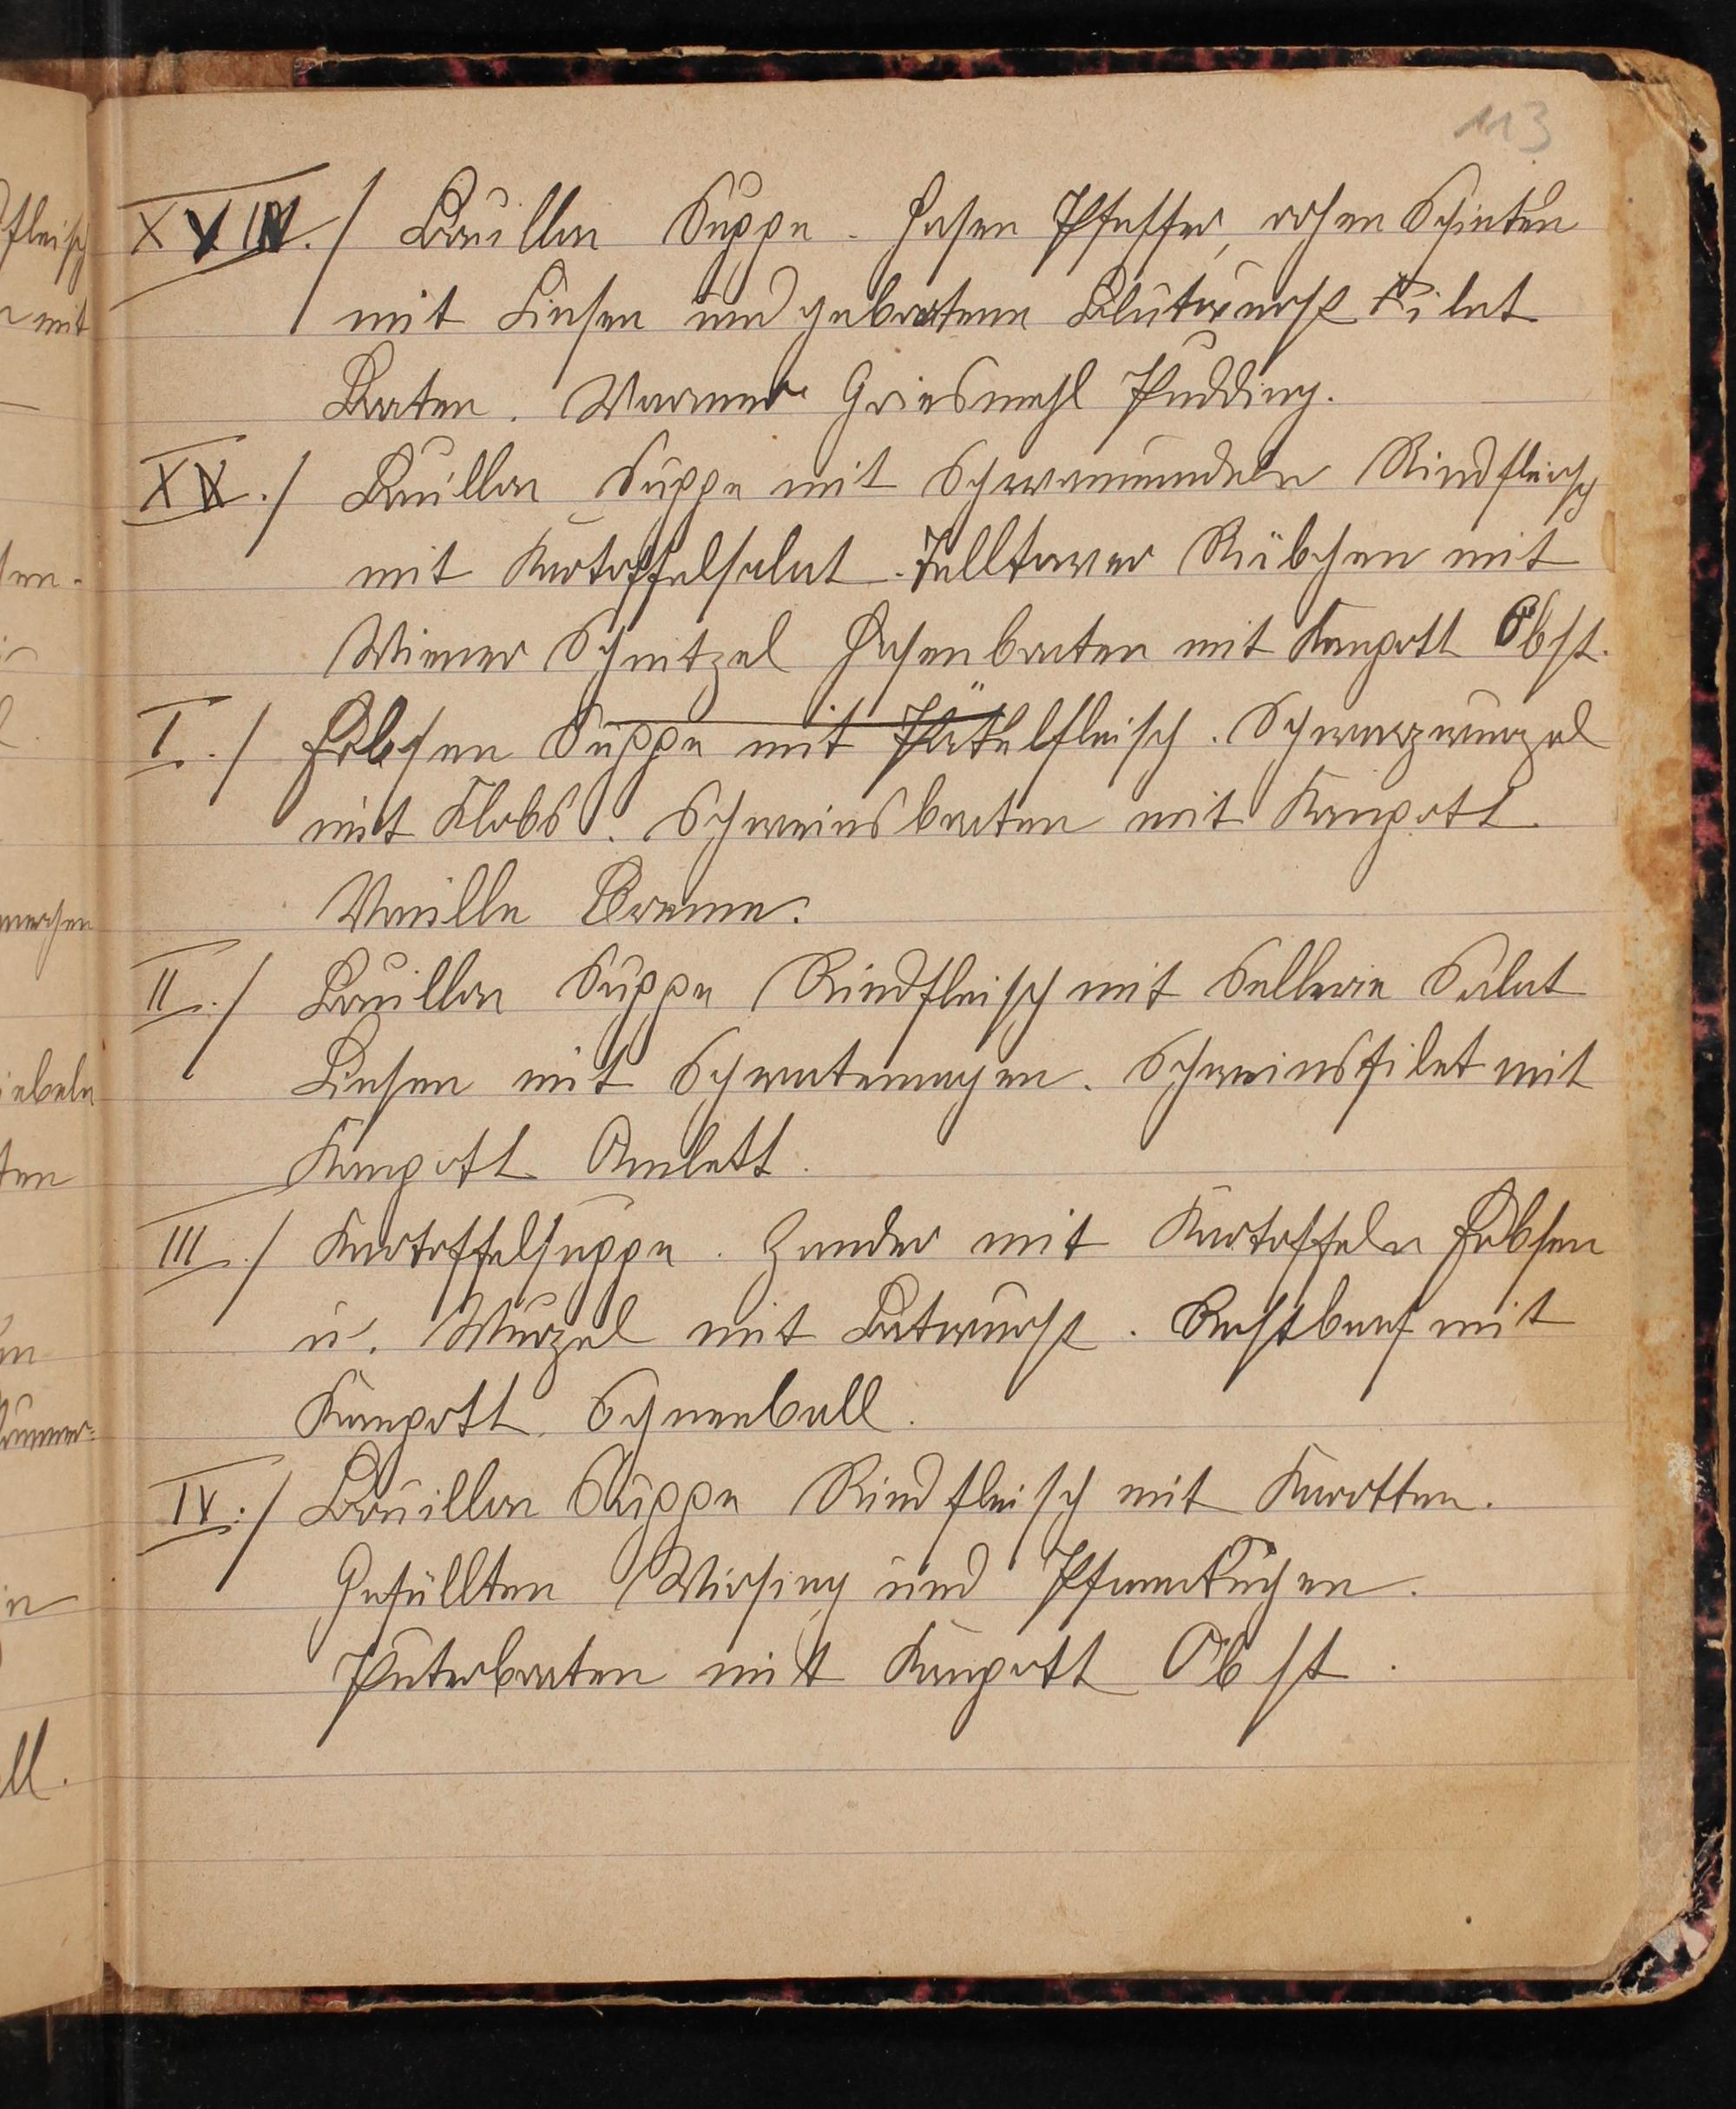 113
XVIII./ Bouillon Suppe. Hasen Pfeffer, rohen Schinken
mit Linsen und gebratene Blutwurst Filet
Braten. Warmer Griesmehl Pudding.
XX./ Bouillon Suppe mit Schwammnudeln Rindfleisch
mit Kartoffelsalat. Telltower Rübchen mit
Wiener Schnitzel Hasenbraten mit Kompott Obst.
I./ Erbsen Suppe mit Pökelfleisch. Schwarzwurzel
mit Klobs. Schweinsbraten mit Kompott
Vanille Creme.
II./ Bouillon Suppe Rindfleisch mit Sellerie Salat
Linsen mit Schwatemagen. Schweinsfilet mit
Kompott Omlett.
III./ Kartoffelsuppe. Zander mit Kartoffeln Erbsen
u. Wurzel mit Bratwurst. Rostbeef mit
Kompott. Schneeball.
IV./ Bouillon Suppe Rindfleisch mit Karotten.
Gefüllten Wirsing und Pfannkuchen.
Puterbraten mit Kompott Obst.
fleisch
mit